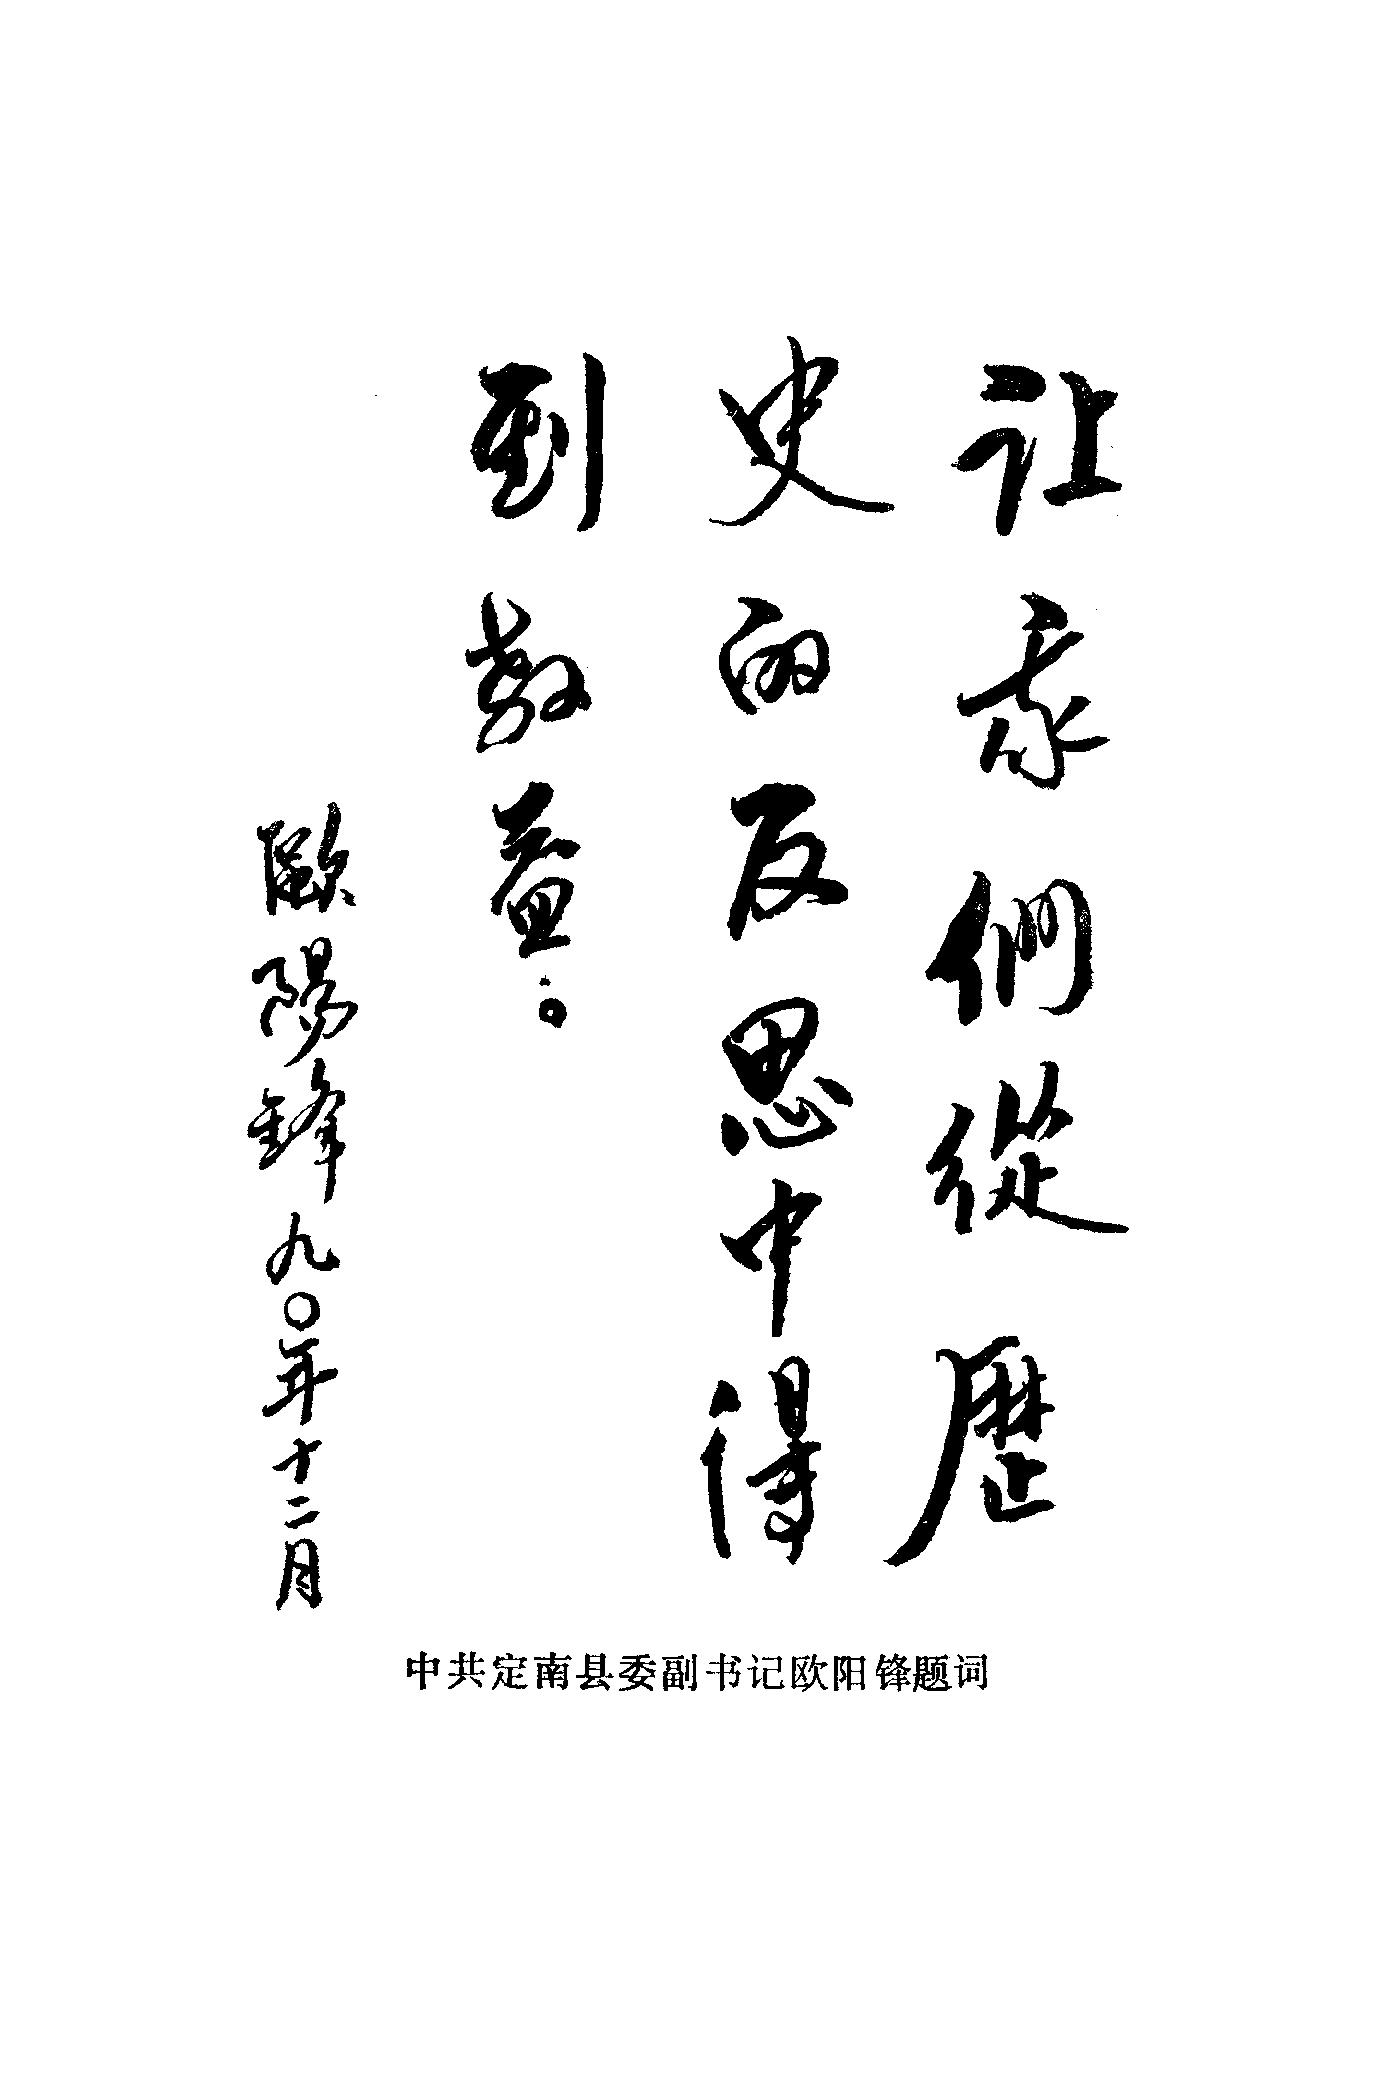 让我們從歷
史的反思中得
到教益。
歐陽鋒九〇年十二月
中共定南县委副书记欧阳锋题词